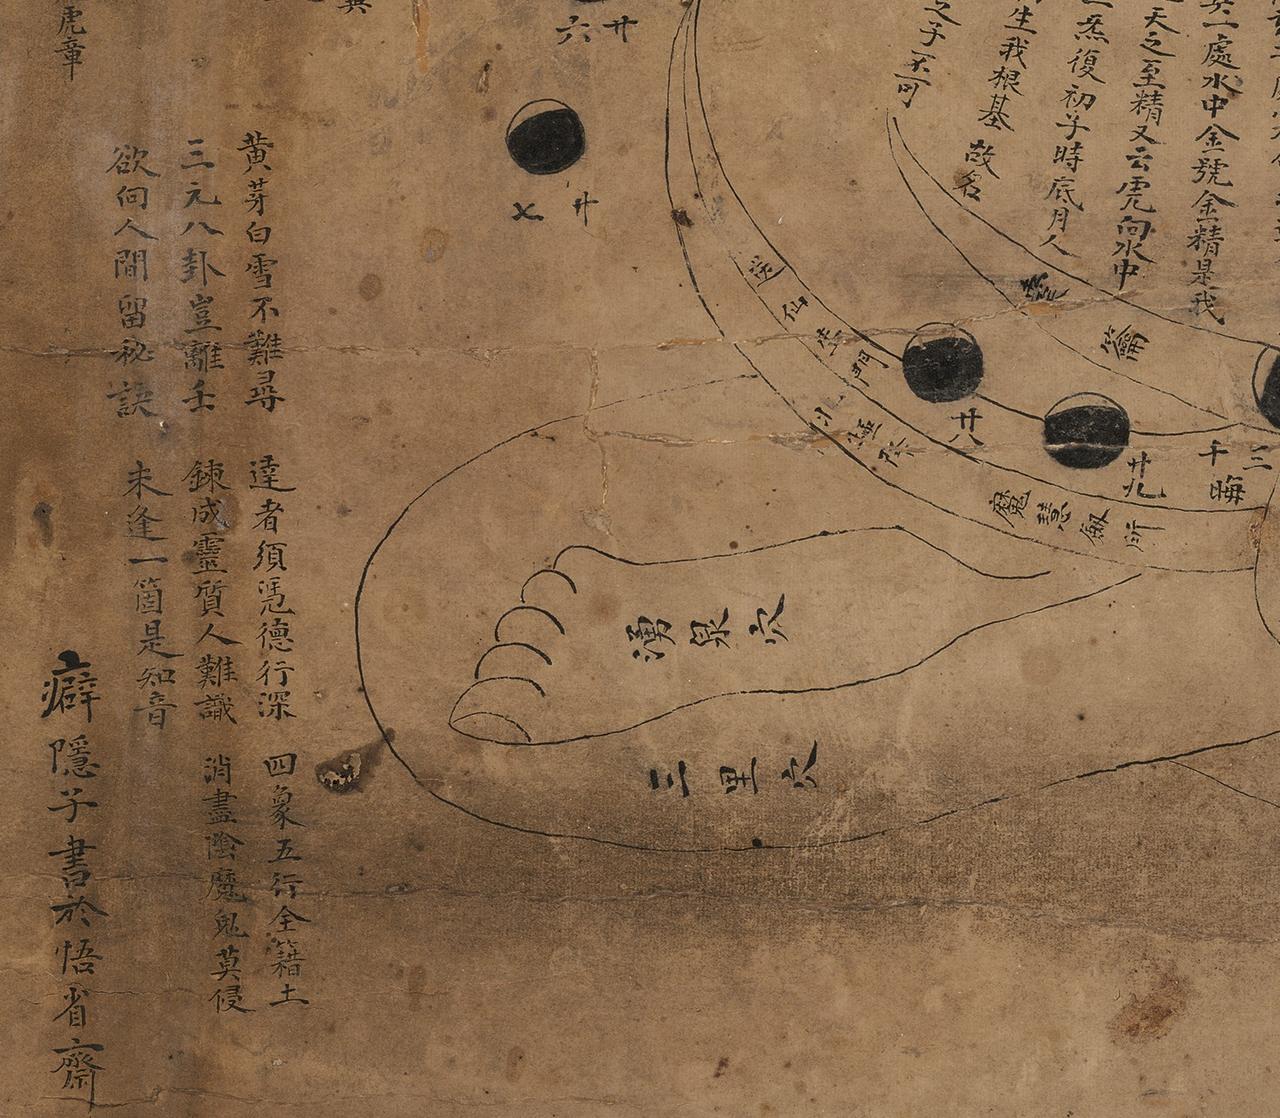 處水中金號金精是我
天之至精又云虎向水中
炁復初孚時底月人
生我根基 故名
之子天可
廿六
廿七
廿八
廿九
三十晦
籥
仙
門
魔慧劔所
湧泉穴
三里穴
虎章
黄芽白雪不難尋 達者須凴德行深 四象五行全籍土
三元八卦豈離壬 鍊成靈質人難識 消盡陰魔鬼莫侵
欲向人間留秘訣 未逢一箇是知音
癖隱子書於悟省齋